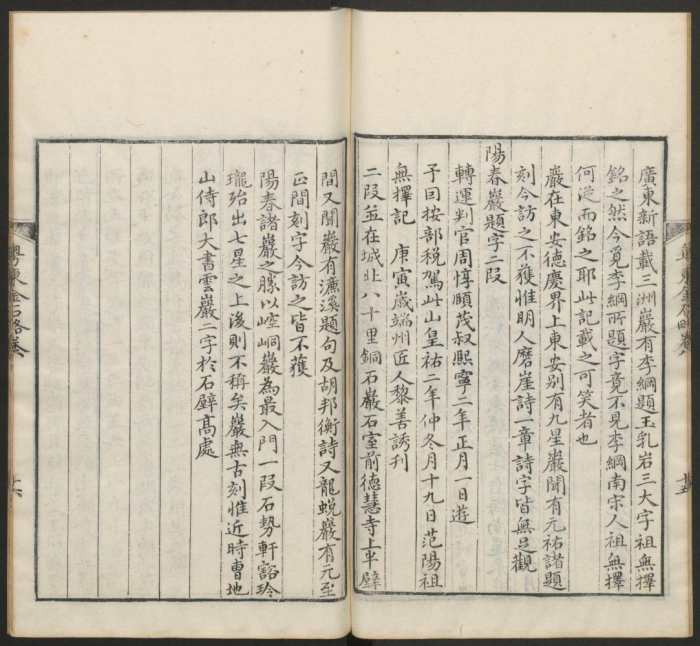 廣東新語載三洲巖有李綱題玉乳岩三大字祖無擇
銘之然今覓李綱所題字竟不見李綱南宋人祖無擇
何從而銘之耶此記載之可笑者也
巖在東安德慶界上東安别有九星巖聞有元祐諸題
刻今訪之不獲惟明人磨崖詩一章詩字皆無足觀
陽春巖題字二段
轉運判官周惇頤茂叔熙寧二年正月一日遊
子回按部税駕此山皇祐二年仲冬月十九日范陽祖
無擇記 庚寅歲端州近人黎善誘刋
二段並在城北八十里銅石巖石室前德慧寺上半壁
間又開巖有濂溪題句及胡邦衡詩又龍蛻巖有元至
正間刻字今訪之皆不獲
陽春諸巖之勝以崆峒巖為最入門一段石勢軒豁玲
瓏殆出七星之上後則不稱矣巖無古刻惟近時曹地
山侍郎大書雲巖二字於石壁高處
粤東金石略卷八
十五
粤東金石略卷八
十六